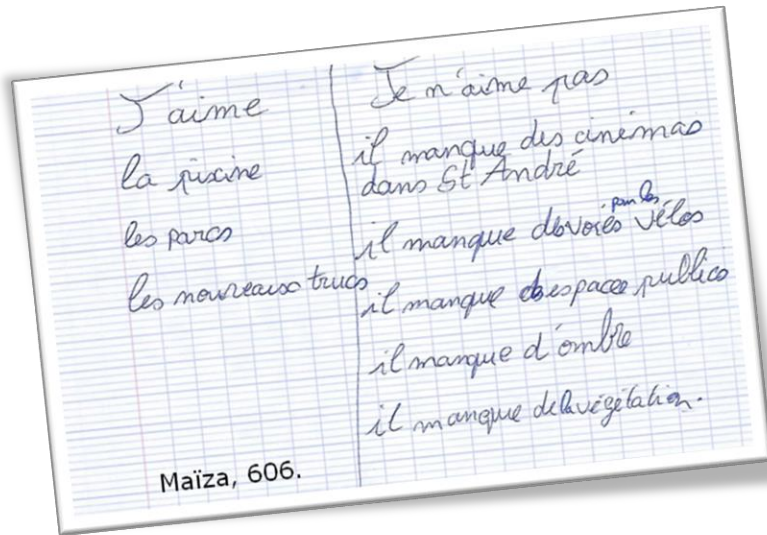 J'aime
la piscine
les parcs
les nouveaux trucs
Je n'aime pas
il manque des cinémas
dans St André
il manque de voies pour les vélos
il manque des espaces publics
il manque d'ombre
il manque de la végétation.
Maïza, 606.